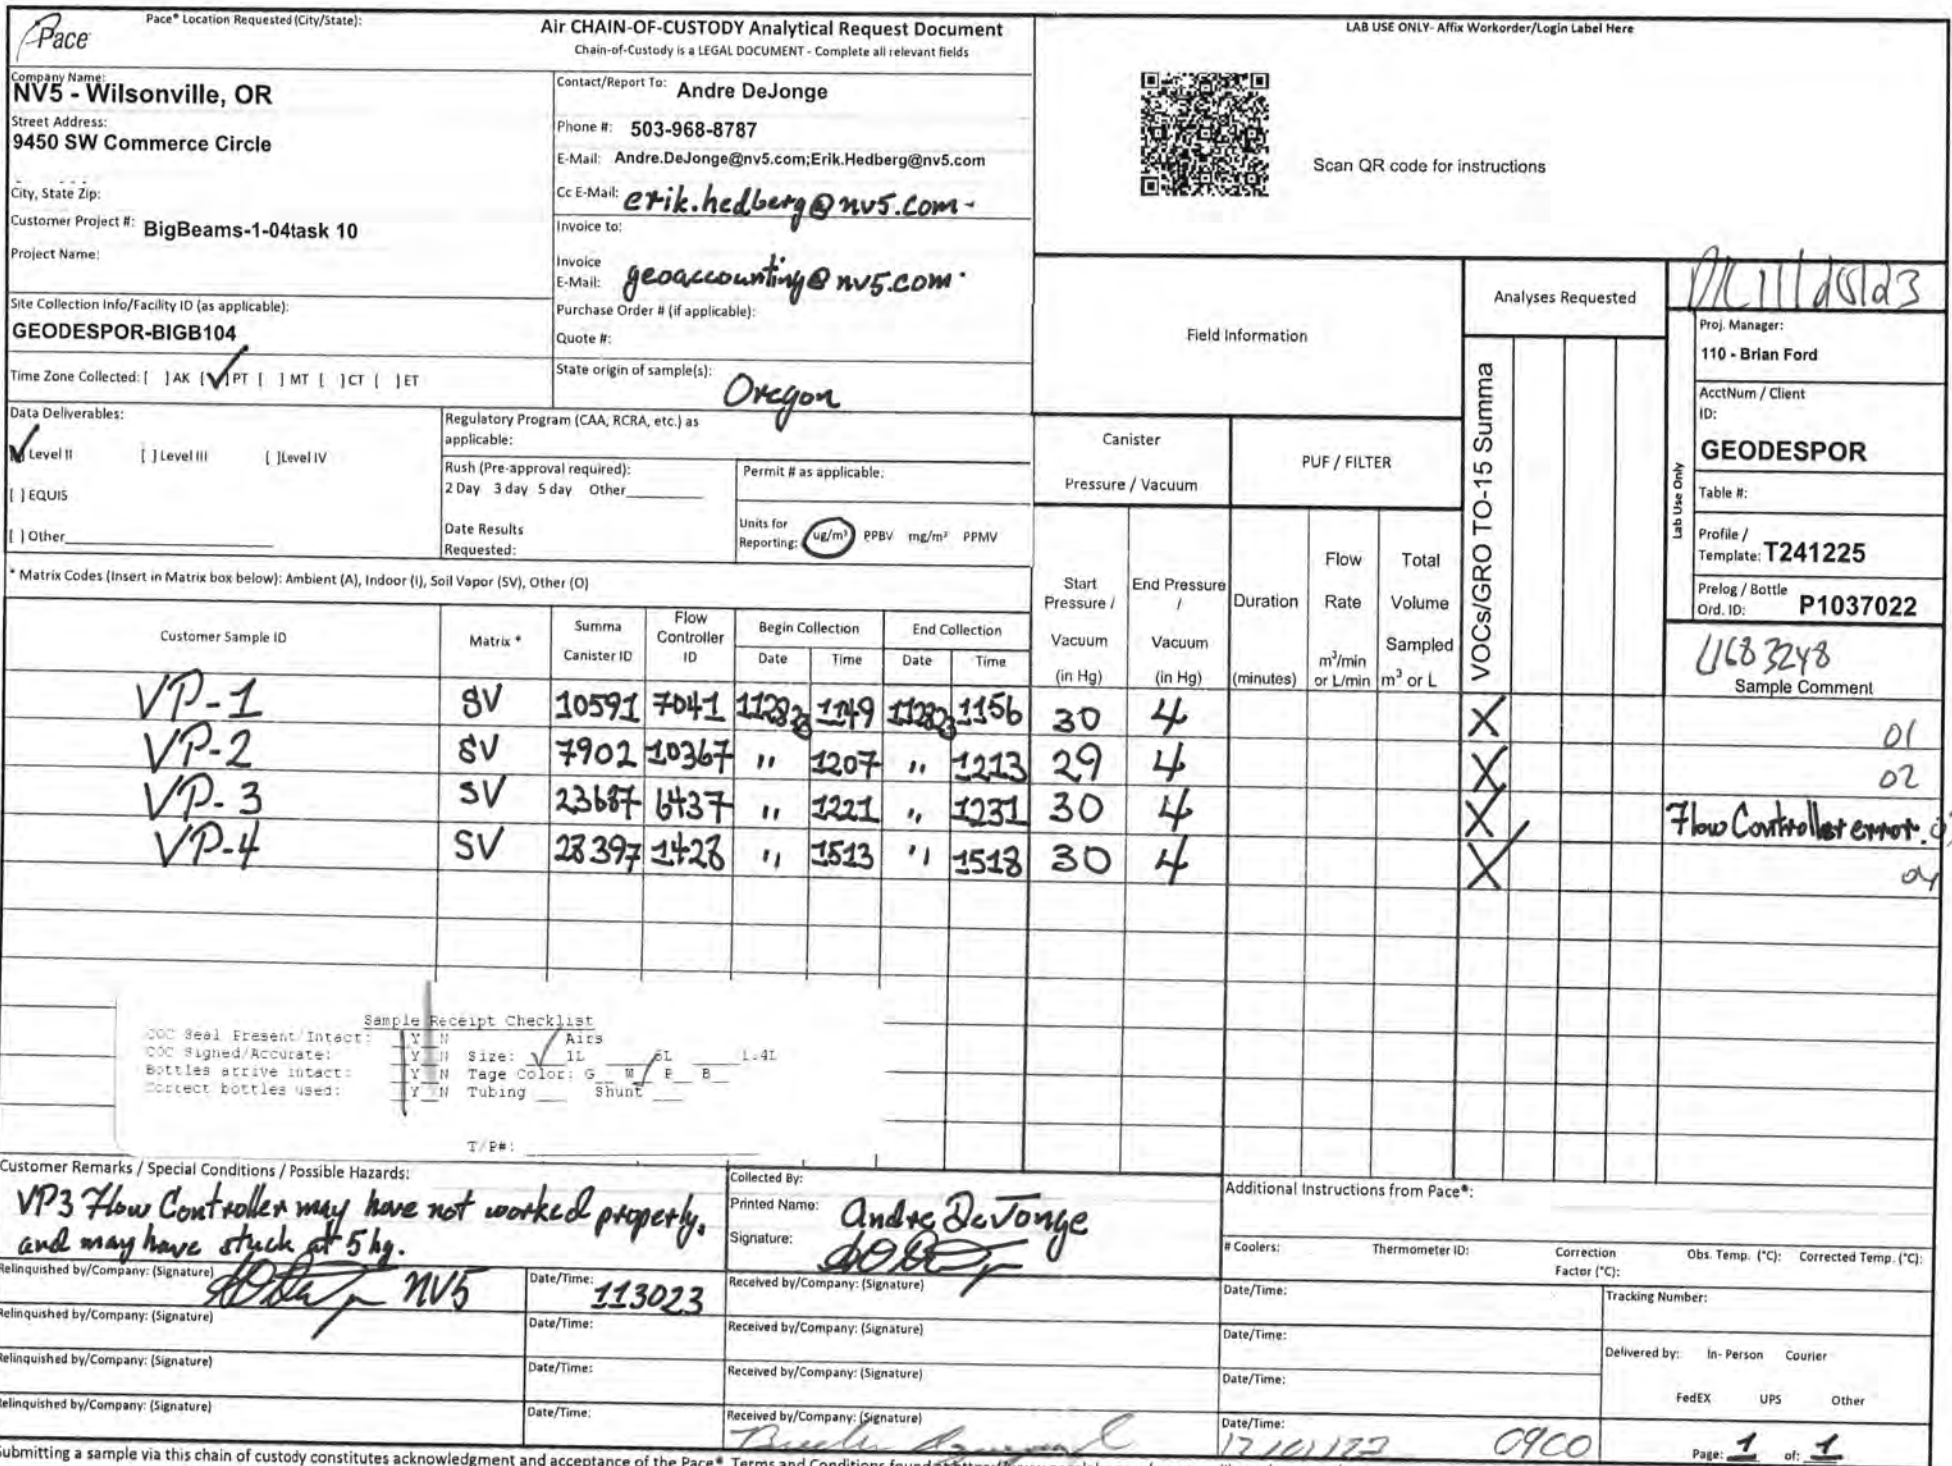 Pace
Pace® Location Requested (City/State):
Air CHAIN-OF-CUSTODY Analytical Request Document
Chain-of-Custody is a LEGAL DOCUMENT - Complete all relevant fields
LAB USE ONLY- Affix Workorder/Login Label Here
Scan QR code for instructions
Company Name:
NV5 - Wilsonville, OR
Street Address:
9450 SW Commerce Circle
City, State Zip:
Customer Project #: BigBeams-1-04task 10
Project Name:
Site Collection Info/Facility ID (as applicable):
GEODESPOR-BIGB104
Time Zone Collected: [ ] AK [✓] PT [ ] MT [ ] CT [ ] ET
Contact/Report To: Andre DeJonge
Phone #: 503-968-8787
E-Mail: Andre.DeJonge@nv5.com;Erik.Hedberg@nv5.com
Cc E-Mail: erik.hedberg@nv5.com
Invoice to:
Invoice E-Mail: geoaccounting@nv5.com
Purchase Order # (if applicable):
Quote #:
State origin of sample(s): Oregon
Data Deliverables:
[✓] Level II [ ] Level III [ ] Level IV
[ ] EQUIS
[ ] Other
Regulatory Program (CAA, RCRA, etc.) as applicable:
Rush (Pre-approval required):
2 Day 3 day 5 day Other
Date Results Requested:
Permit # as applicable:
Units for Reporting: ug/m³ PPBV mg/m³ PPMV
* Matrix Codes (Insert in Matrix box below): Ambient (A), Indoor (I), Soil Vapor (SV), Other (O)
Field Information
Analyses Requested
Canister Pressure / Vacuum
PUF / FILTER
VOCs/GRO TO-15 Summa
Lab Use Only
Proj. Manager:
110 - Brian Ford
AcctNum / Client ID:
GEODESPOR
Table #:
Profile / Template: T241225
Prelog / Bottle Ord. ID: P1037022
L1683248
Sample Comment
Customer Sample ID
Matrix *
Summa Canister ID
Flow Controller ID
Begin Collection Date Time
End Collection Date Time
Start Pressure / Vacuum (in Hg)
End Pressure / Vacuum (in Hg)
Duration (minutes)
Flow Rate m³/min or L/min
Total Volume Sampled m³ or L
VP-1 SV 10591 7041 112823 1149 112823 1156 30 4 X 01
VP-2 SV 7902 10367 " 1207 " 1213 29 4 X 02
VP-3 SV 23687 6437 " 1221 " 1231 30 4 X Flow Controller error.
VP-4 SV 28397 1428 " 1513 " 1518 30 4 X 04
Sample Receipt Checklist
COC Seal Present/Intact: Y N Airs
COC Signed/Accurate: Y N Size: 1L 6L 1.4L
Bottles arrive intact: Y N Tage Color: G W P B
Correct bottles used: Y N Tubing Shunt
T/P#:
Customer Remarks / Special Conditions / Possible Hazards:
VP3 Flow Controller may have not worked properly, and may have stuck at 5 hg.
Collected By:
Printed Name: Andre DeJonge
Signature:
Additional Instructions from Pace®:
# Coolers: Thermometer ID: Correction Factor (°C): Obs. Temp. (°C): Corrected Temp. (°C):
Relinquished by/Company: (Signature) NV5
Date/Time: 113023
Received by/Company: (Signature)
Date/Time:
Tracking Number:
Relinquished by/Company: (Signature)
Date/Time:
Received by/Company: (Signature)
Date/Time:
Delivered by: In- Person Courier
Relinquished by/Company: (Signature)
Date/Time:
Received by/Company: (Signature)
Date/Time:
FedEX UPS Other
Relinquished by/Company: (Signature)
Date/Time:
Received by/Company: (Signature)
Date/Time: 0900
Page: 1 of: 1
Submitting a sample via this chain of custody constitutes acknowledgment and acceptance of the Pace® Terms and Conditions found